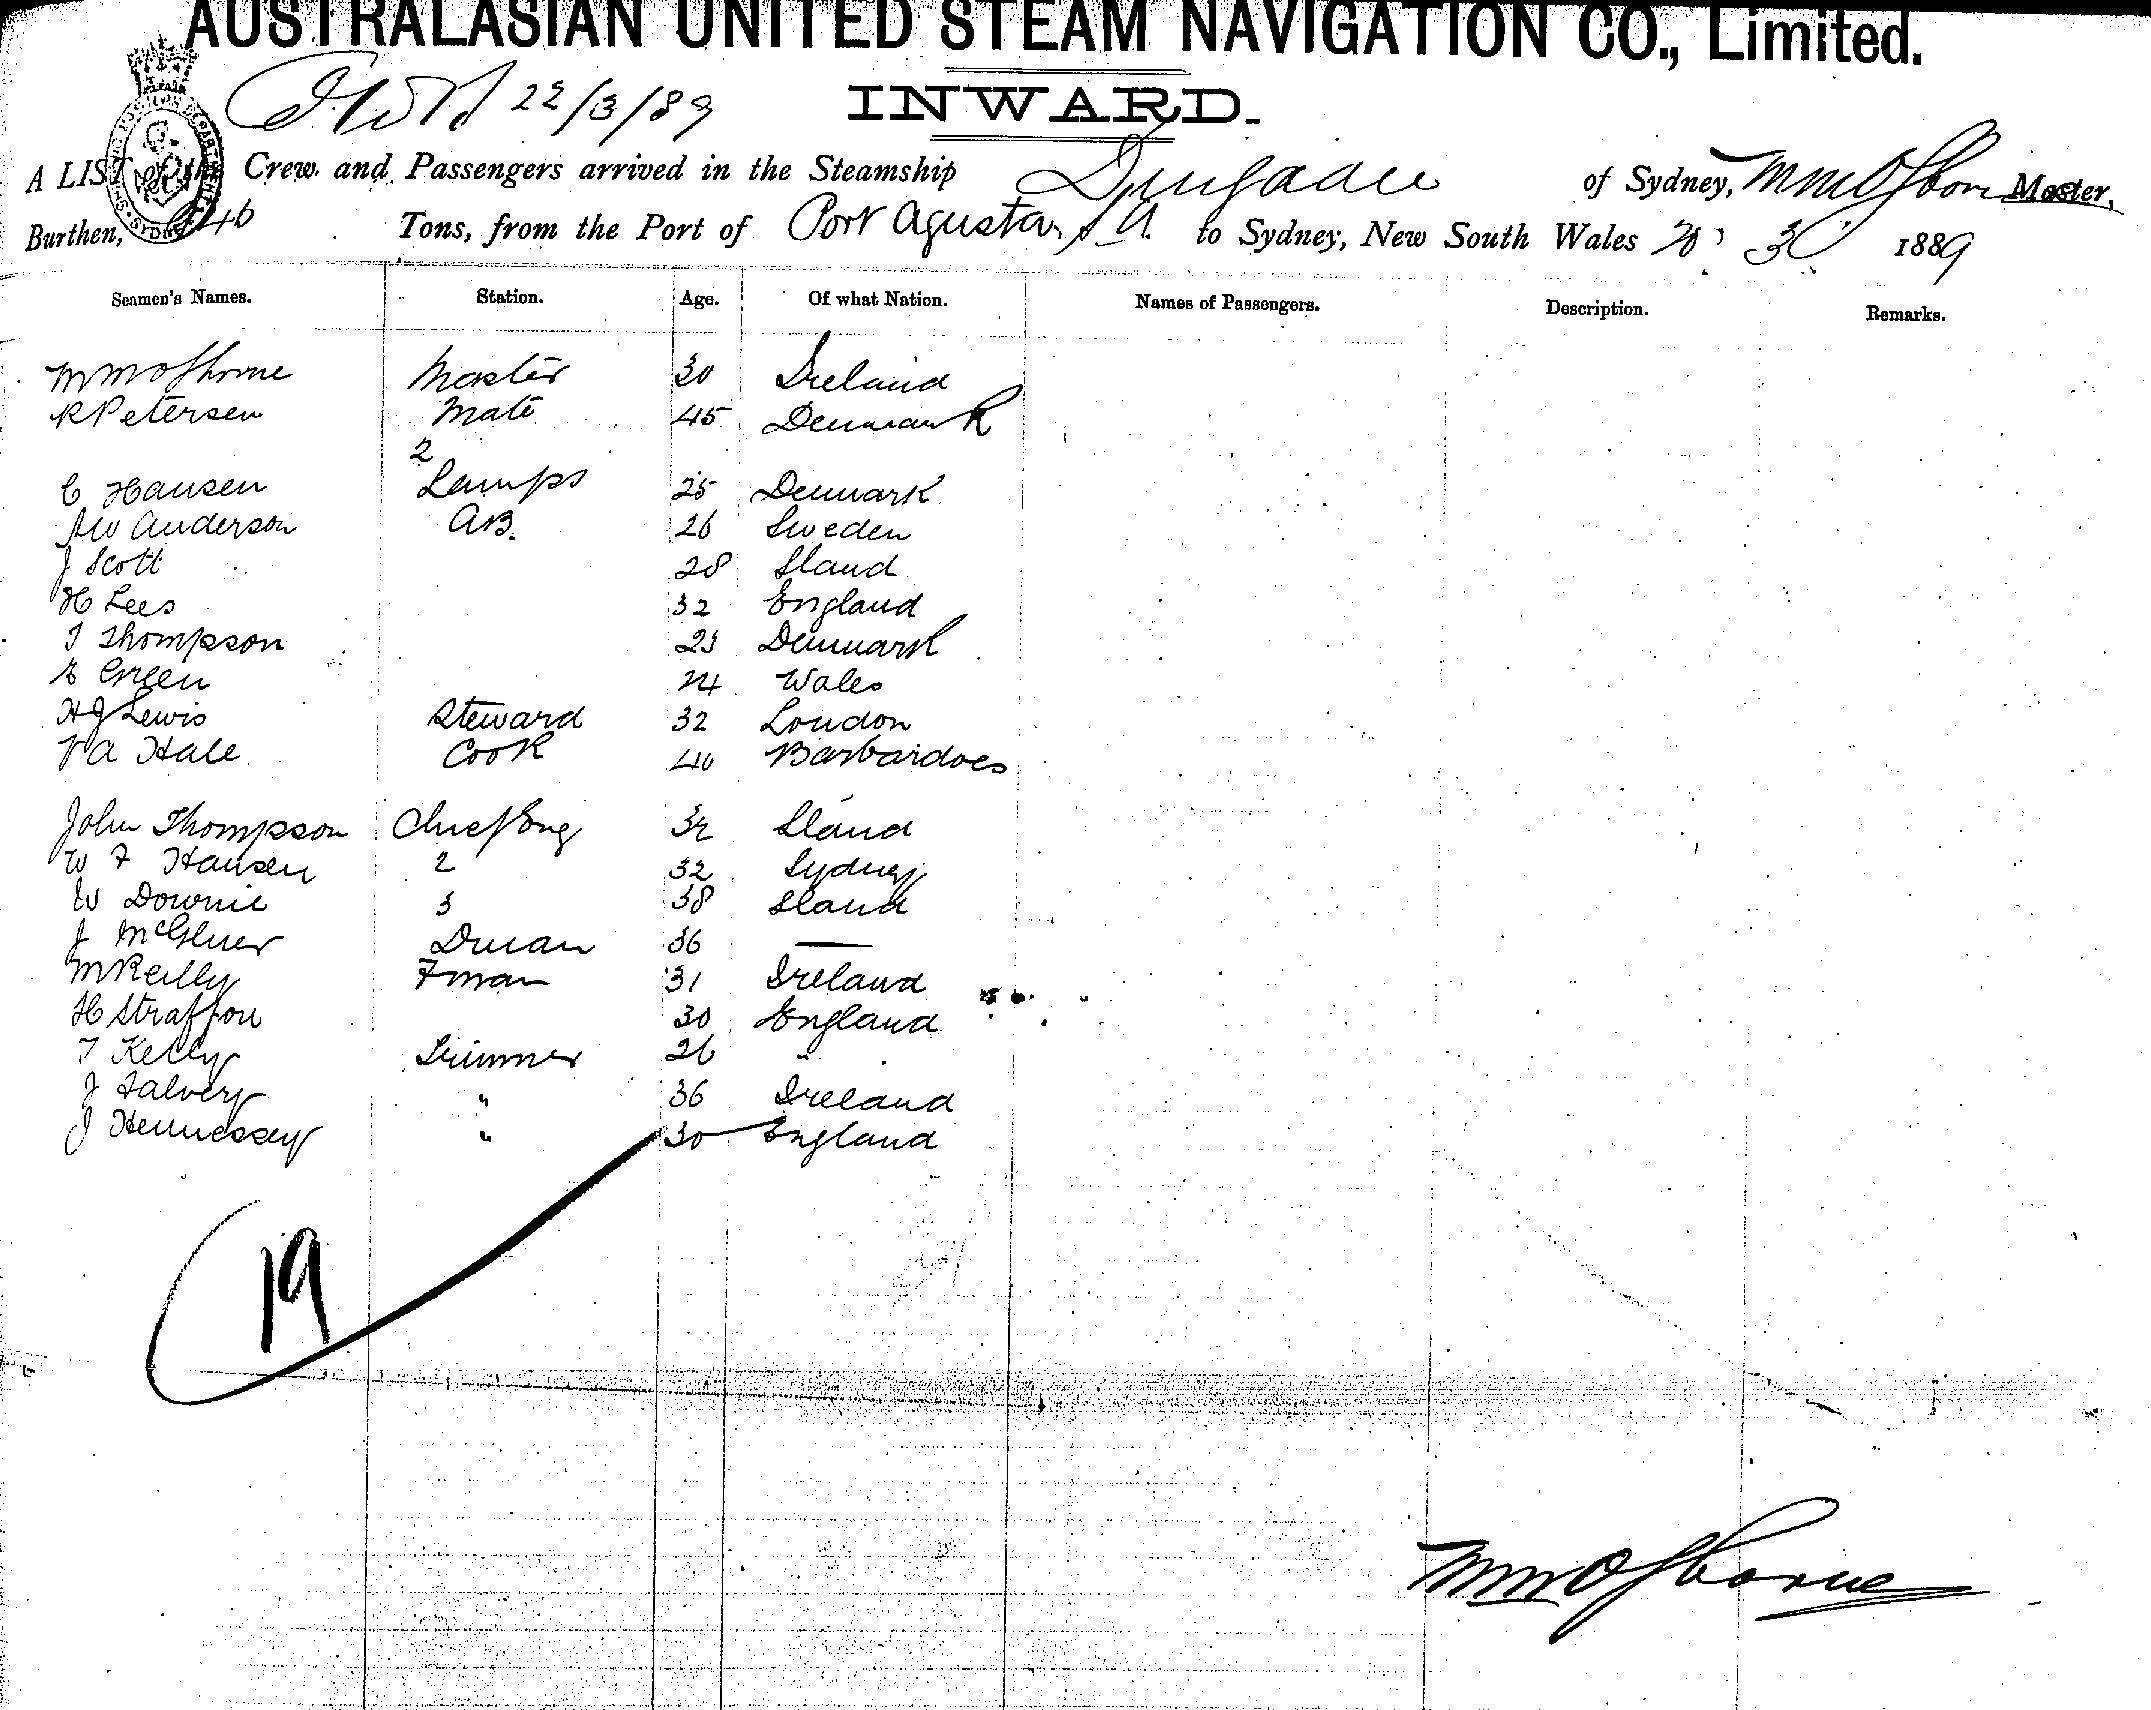 AUSTRALASIAN UNITED STEAM NAVIGATION CO., Limited.
22/3/89 INWARD.
A LIST of the Crew and Passengers arrived in the Steamship of Sydney, M M Osborne Master,
Burthen, Tons, from the Port of Port Agusta, S A. to Sydney, New South Wales 1889
Seamen's Names. Station. Age. Of what Nation. Names of Passengers. Description. Remarks.
M M Osborne Master 30 Ireland
R Petersen Mate 45 Denmark
2
C Hansen Lamps 25 Denmark
A W Anderson AB. 26 Sweden
J Scott 28 Sland
H Lees 32 England
T Thompson 23 Denmark
E Green 24 Wales
H J Lewis Steward 32 London
A Hale Cook 40 Barbardoes
John Thompson Chief Eng 32 Sland
W F Hansen 2 32 Sydney
W Downie 3 38 Sland
J Dman 36 —
M Reilly Fman 31 Ireland
H Straffon 30 England
T Kelly Trimmer 26 "
J Falvery " 36 Ireland
J Hennessey " 30 England
19
M M Osborne